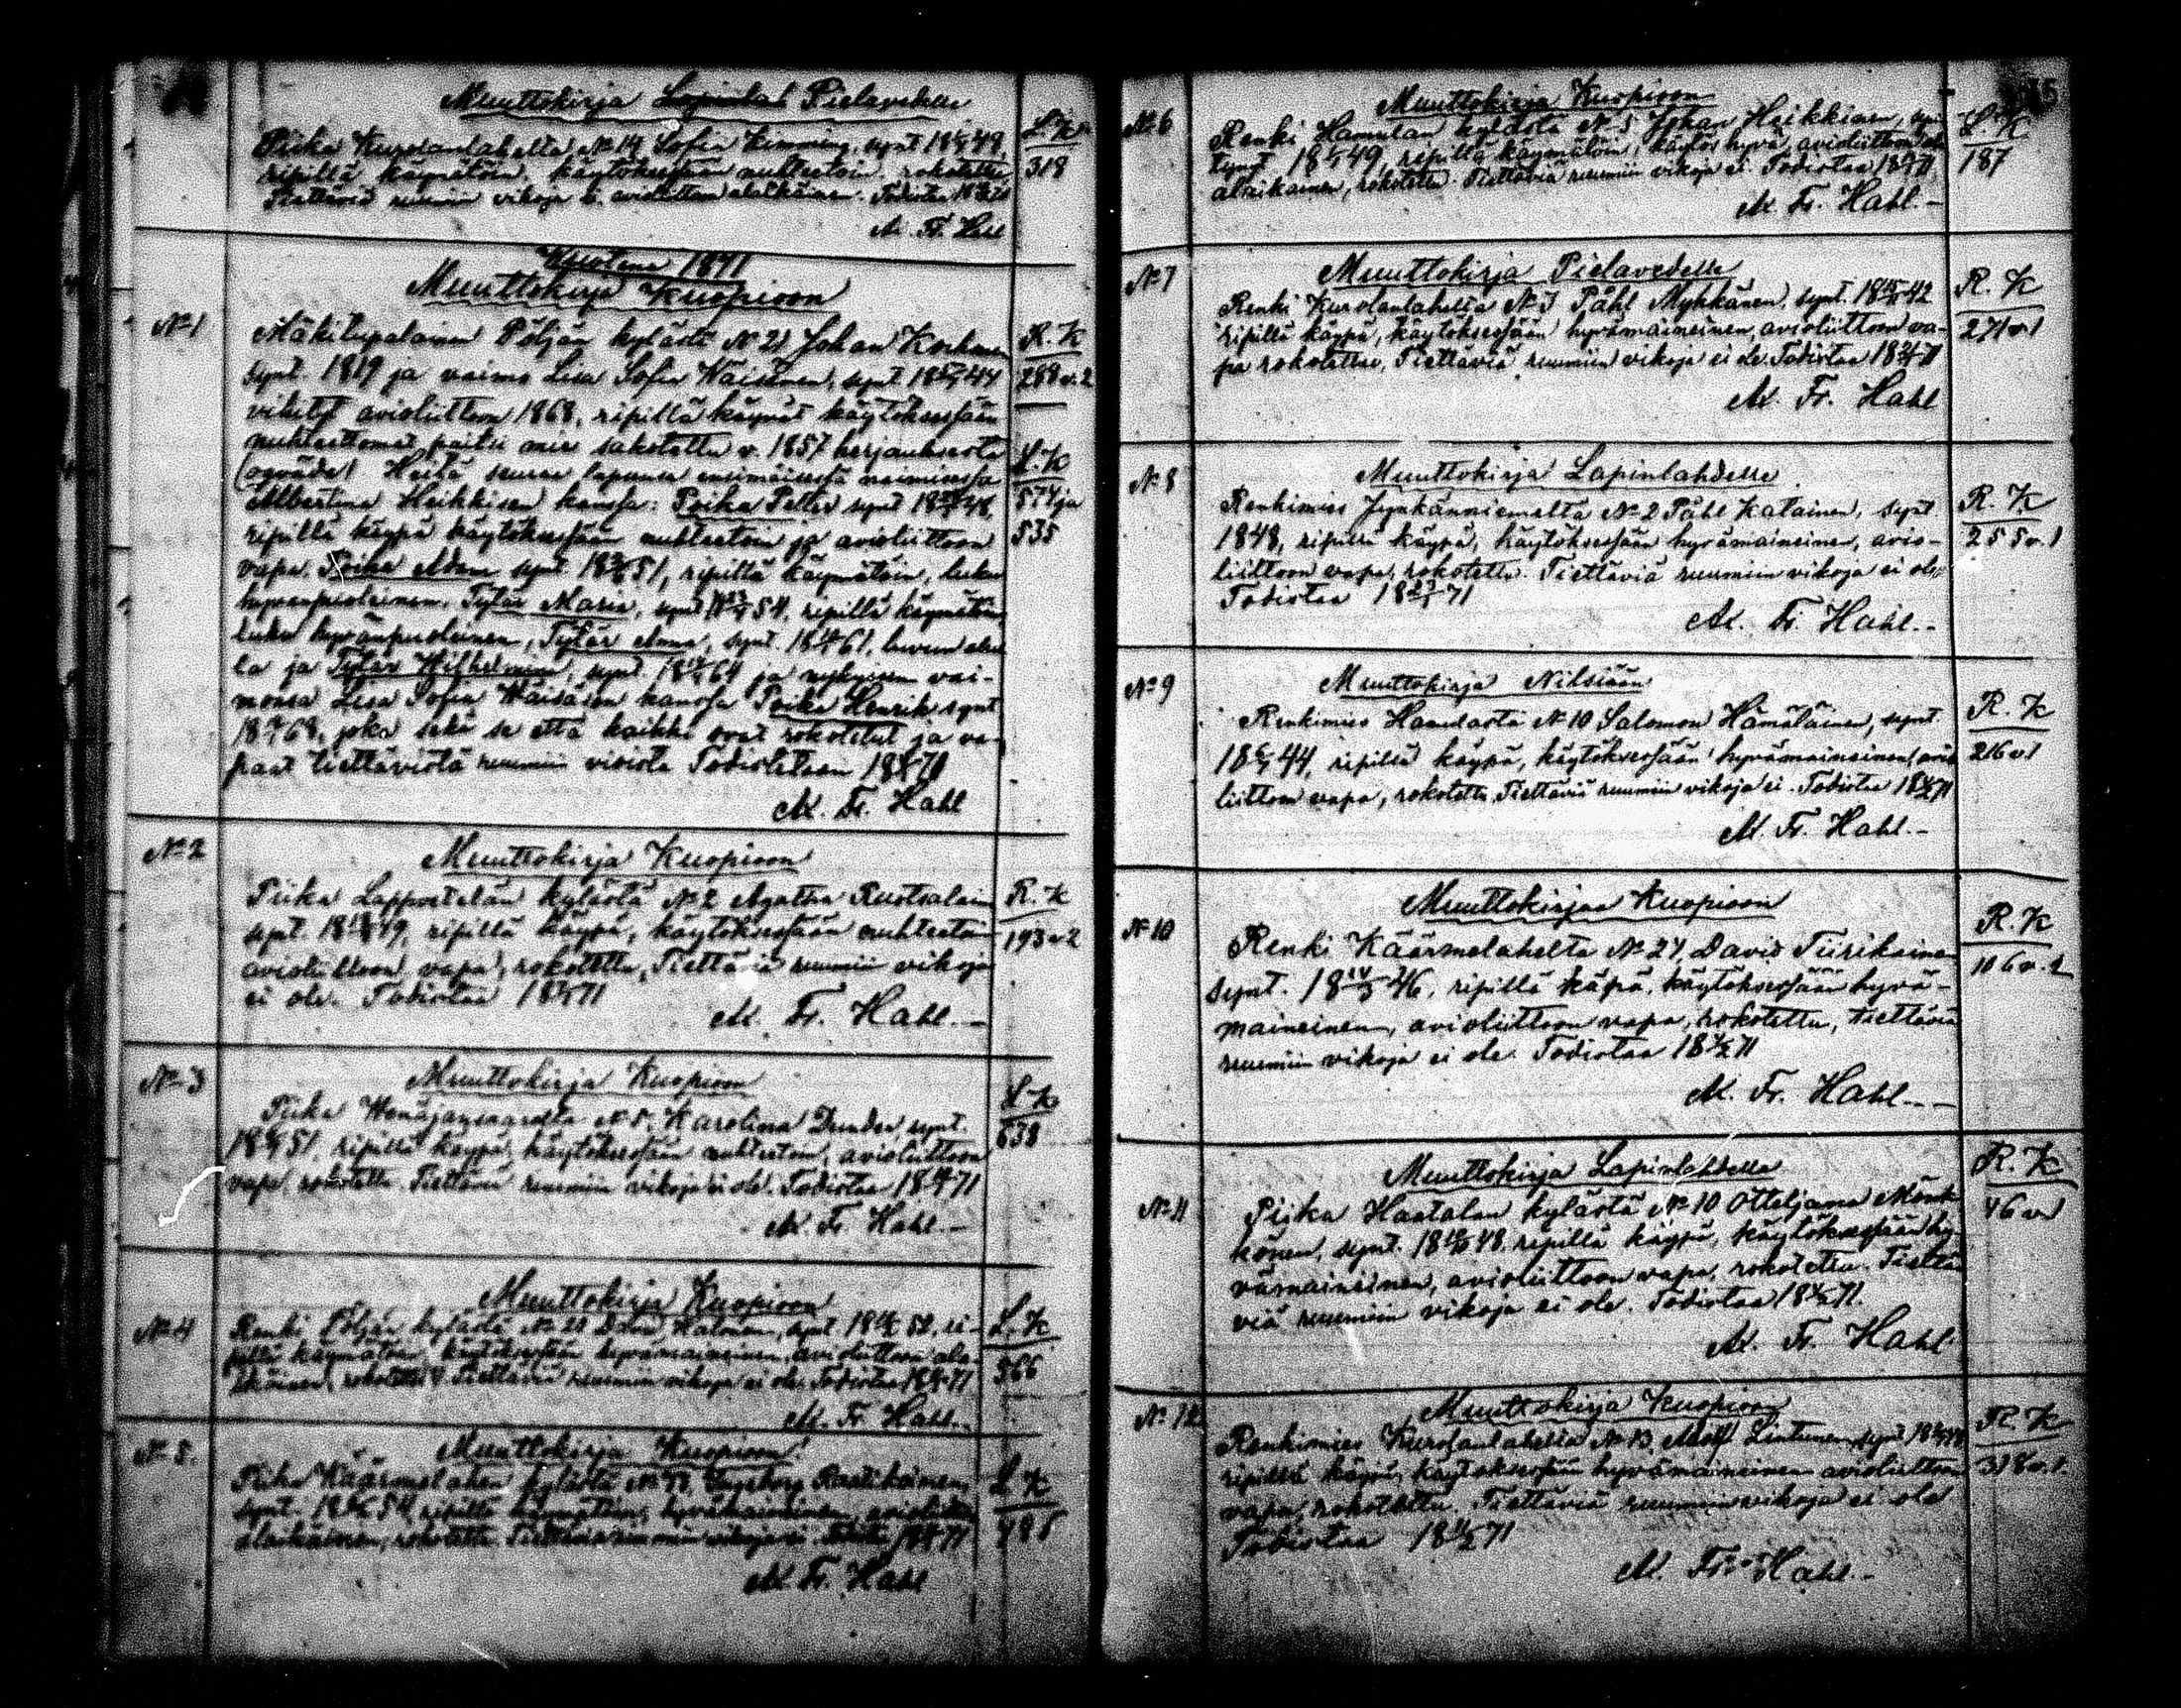 Muuttokirja Pielavedelle
Piika Kurolanlahelta No 14 Sofia Kimming, synt 18 49,
ripillä käymätöin, käytöksessään nuhteetoin, rokotettu
Tiettäviä ruumiin vikoja ei avioliittoon alaikäinen. Todistaa 18
M. Fr. Hahl
L. K
318
Vuotena 1871
Muuttokirja Kuopioon
No 1
Mäkitupalainen Pöljän kylästä No 21 Johan Korhonen
synt. 1819 ja vaimo Lisa Sofia Wäisänen, synt 18 44
vihityt avioliittoon 1868, ripillä käynät käytöksessään
nuhteettomat paitsi mies sakotettu v. 1857 herjauksesta
(oqväde) Heitä seuraa lapsensa ensimäisessä naimisessa
Albertina Heikkisen kanssa: Poika Petter synt 18 48,
ripillä käypä käytöksessään nuhteetoin ja avioliittoon
vapa. Poika Adam synt 18 51, ripillä käymätöin, luku
hyvänpuoleinen, Tytär Maria, synt 18 54, ripillä käymätöin
luku hyvänpuoleinen, Tytär Anna, synt. 18 61, luvun alul
la ja Tytär Wilhelmina, synt 18 64 ja nykyisen vai-
monsa Lisa Sofia Wäisäsen kanssa Poika Henrik synt
18 68, joka sekä se että kaikki ovat rokotetut ja va-
paat tiettävistä ruumiin vioista Todistetaan 18 71
M. Fr. Hahl
R. K
289 v. 2
L. K
574 ja
535
No 2
Muuttokirja Kuopioon
Piika Lappetelän kylästä No 2 Agatha Ruotsalain
synt. 18 49, ripillä käypä, käytöksessään nuhteetoin
avioliittoon vapa, rokotettu, Tiettäviä ruumiin vikoja
ei ole. Todistaa 18 71
M. Fr. Hahl.
R. K
193 v 2
No 3
Muuttokirja Kuopioon
Piika Wenäjänsaarelta No 5, Karolina Dunder synt.
18 51, ripillä käypä, käytöksessään nuhteetoin, avioliittoon
vapa, rokotettu. Tiettäviä ruumiin vikoja ei ole. Todistaa 18 71
M. Fr. Hahl.
L. K
638
No 4
Muuttokirja Kuopioon
Renki Pöljän kylästä No 21 Halonen, synt 18 52, ri-
pillä käymätöin, käytöksessään hyvämaineinen, avioliittoon ala-
ikäinen, rokotettu. Tiettäviä ruumiin vikoja ei ole. Todistaa 18 71
M. Fr. Hahl.
L. K
566
No 5.
Muuttokirja Kuopioon
Piika Käärmelahen kylästä Ingeborg Raatikainen,
synt. 18 54, ripillä käymätöin, hyvämaineinen, avioliittoon
alaikäinen, rokotettu. Tiettäviä ruumiin vikoja ei 18 71
M. Fr. Hahl
L. K
No 6
Muuttokirja Kuopioon
Renki Hamulan kylästä No 5 Johan Heikkinen, syn-
tynyt 18 49, ripillä käymätöin, käytös hyvä, avioliittoon
alaikäinen, rokotettu. Tiettäviä ruumiin vikoja ei. Todistaa 18 71.
M. Fr. Hahl.
L. K
187
No 7
Muuttokirja Pielavedelle
Renki Kurolanlahelta No 5 Påhl Mykkänen, synt. 18 42
ripillä käypä, käytöksessään hyvämaineinen, avioliittoon va-
pa rokotettu, Tiettäviä ruumiin vikoja ei ole. Todistaa 18 71
M. Fr. Hahl
R. K
271 v 1
No 8
Muuttokirja Lapinlahdelle
Renkimies Jynkänniemeltä No 2 Påhl Katainen, synt
1848, ripillä käypä, käytöksessään hyvämaineinen, avio-
liittoon vapa, rokotettu. Tiettäviä ruumiin vikoja ei ole,
Todistaa 18 23/1 71
M. Fr. Hahl.
R. K
255 v. 1
No 9
Muuttokirja Nilsiään
Renkimies Hamulasta No 10 Salomon Hämäläinen, synt
18 44, ripillä käypä, käytöksessään hyvämaineinen, avio
liittoon vapa, rokotettu, Tiettäviä ruumiin vikoja ei. Todistaa 18 71
M. Fr. Hahl.
R. K
216 v 1
No 10
Muuttokirjaa Kuopioon
Renki Käärmelahelta No 24, David Tiirikainen
synt. 18 46, ripillä käpä, käytöksessään hyvä-
maineinen, avioliittoon vapa, rokotettu, tiettäviä
ruumiin vikoja ei ole. Todistaa 18 71
M. Fr. Hahl.
R. K
No 11
Muuttokirja Lapinlahdelle
Piika Haatalan kylästä No 10 Otteljana Mönk
könen, synt. 18 48, ripillä käypä, käytöksessään hy-
vämaineinen, avioliittoon vapa, rokotettu. Tiettä
viä ruumiin vikoja ei ole. Todistaa 18 71.
M. Fr. Hahl
R. K
46 v 1
No 12
Muuttokirja Kuopioon
Renkimies Kurolanlahelta No 13, Adolf Lintunen, synt 18
ripillä käypä, käytöksessään hyvämaineinen avioliittoon
vapa, rokotettu. Tiettäviä ruumiin vikoja ei ole
Todistaa 18 71
M. Fr. Hahl.
R. K
318 v. 1.